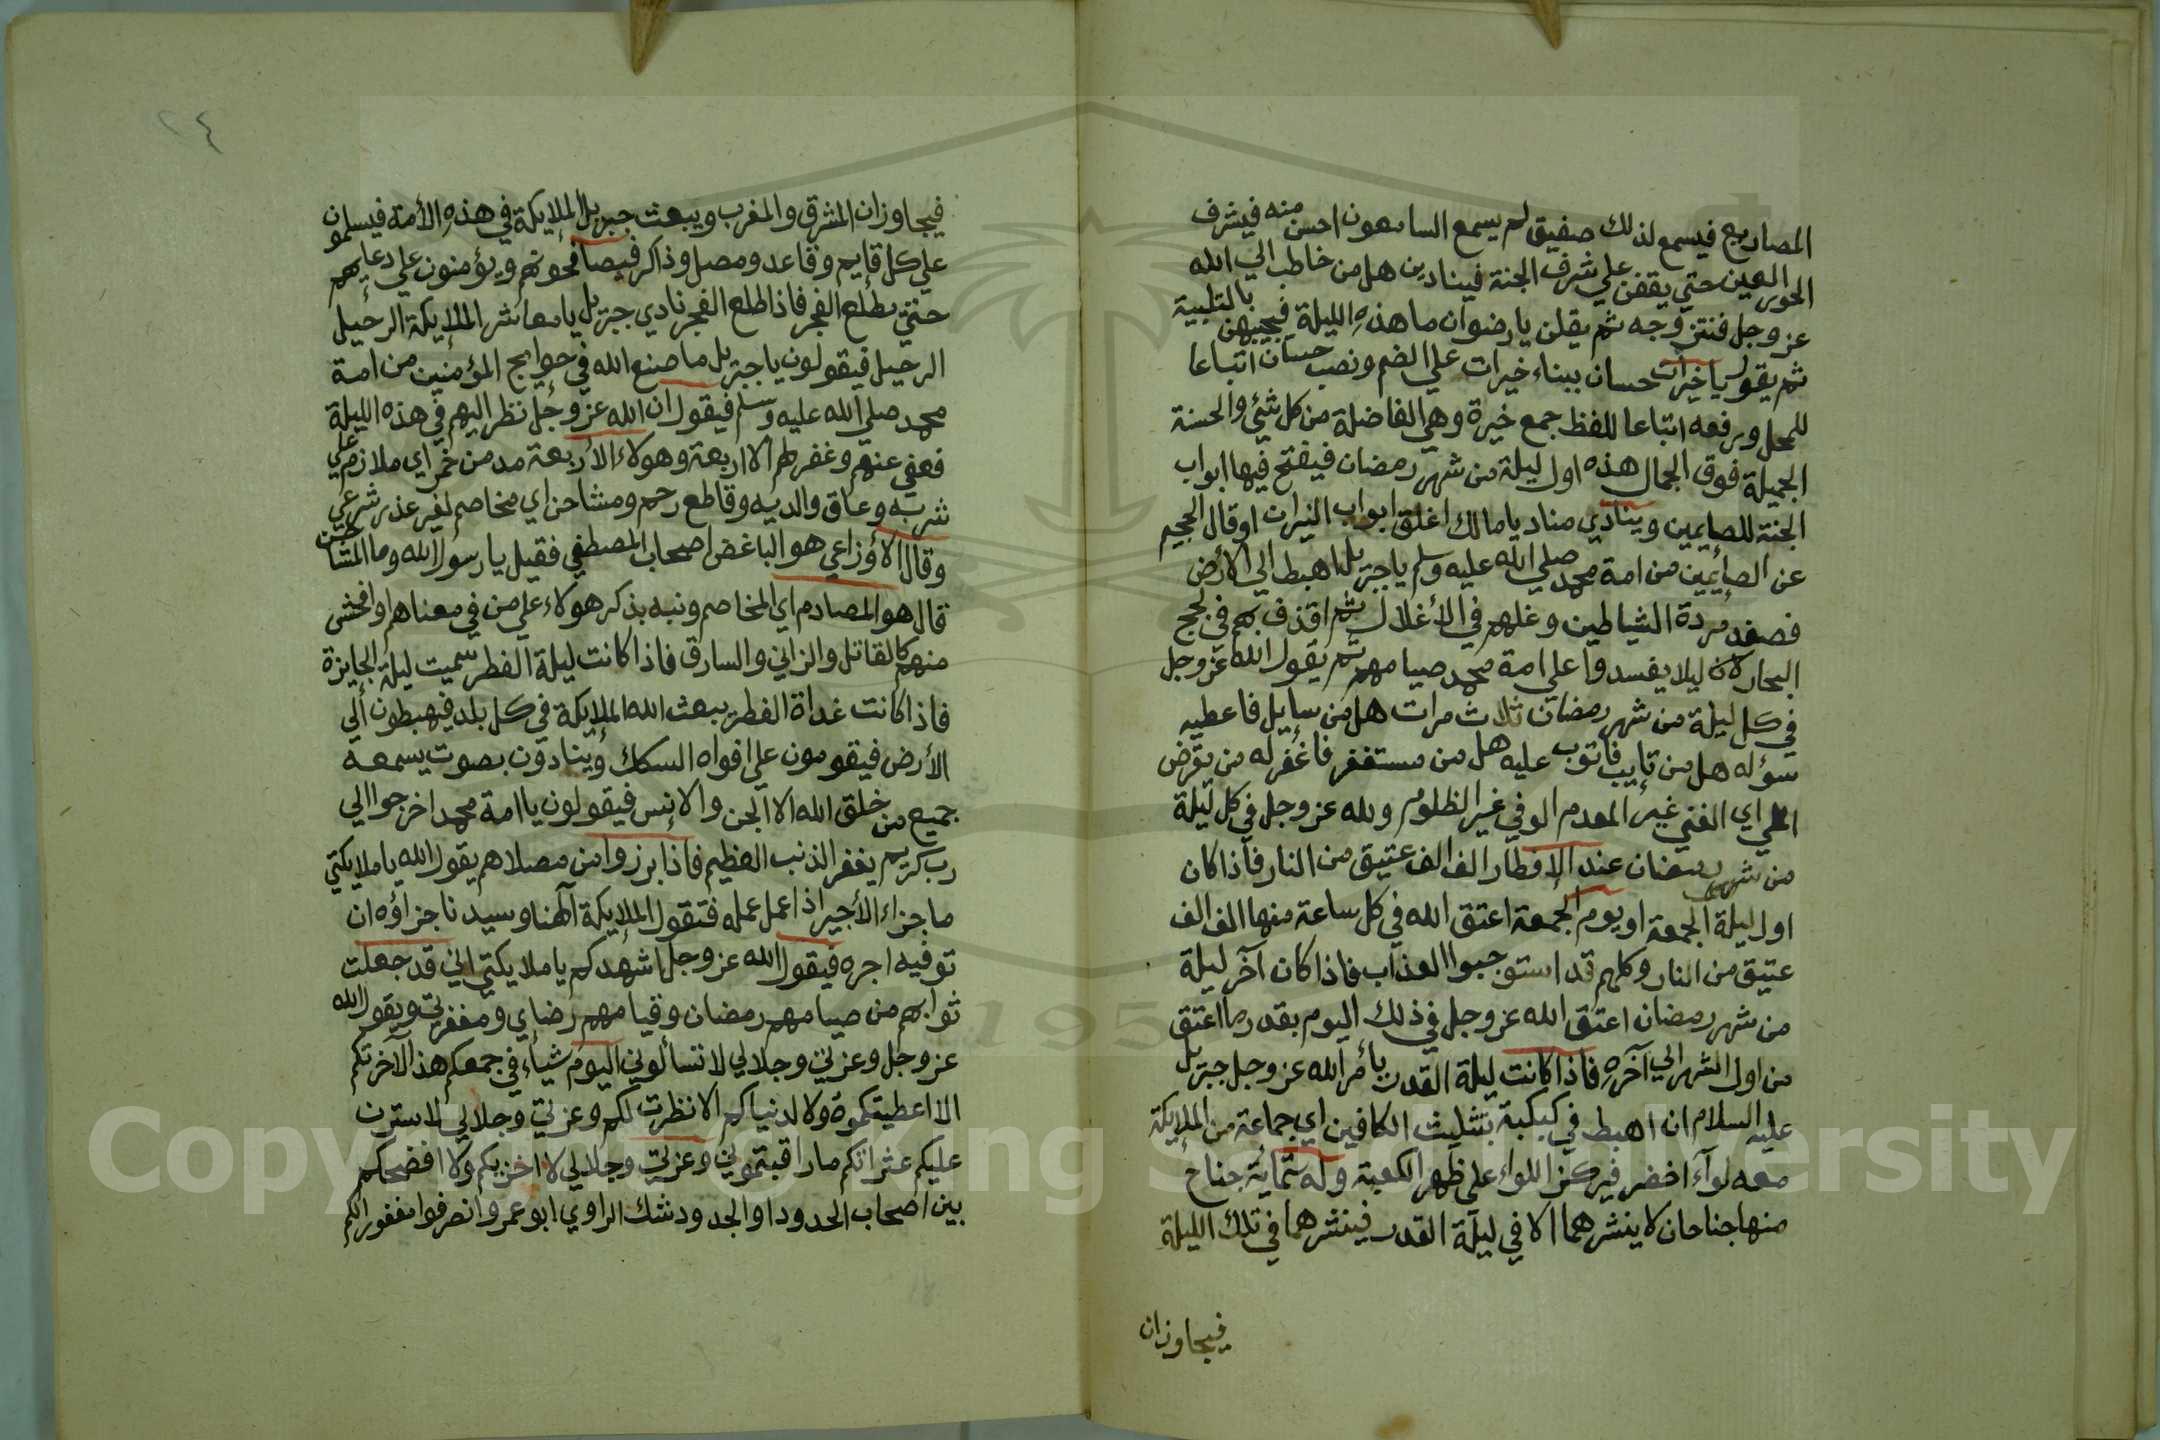 المصاريع فيسمع لذلك صفيق لم يسمع السامعون احسن منه فيشرف
الحور العين حتي يقفن علي شرف الجنة فينادين هل من خاطب الي الله
عز وجل فنتزوجه ثم يقلن يا رضوان ما هذه الليلة فيجيبهن بالتلبية
ثم يقول يا خيرات حسان ببناء خيرات علي الضم ونصب حسان اتباعا
للمحل ورفعه اتباعا للفظ جمع خيرة وهي الفاضلة من كل شيئ والحسنة
الجميلة فوق الجمال هذه اول ليلة من شهر رمضان فيفتح فيها ابواب
الجنة للصايمين وينادي مناد يا مالك اغلق ابواب النيران او قال الجحيم
عن الصايمين من امة محمد صلي الله عليه وسلم يا جبريل اهبط الي الأرض
فصفد مردة الشياطين وغلهم في الأغلال ثم اقذف بهم في لجج
البحار لان ليلا يفسدوا علي امة محمد صيامهم ثم يقول الله عز وجل
في كل ليلة من شهر رمضان ثلاث مرات هل من سايل فاعطيه
سؤله هل من تايب فاتوب عليه هل من مستغفر فاغفر له من يقرض
الملي اي الغني غير المعدم الوفي غير الظلوم ولله عز وجل في كل ليلة
من شهر رمضان عند الافطار الف الف عتيق من النار فاذا كان
اول ليلة الجمعة او يوم الجمعة اعتق الله في كل ساعة منها الف الف
عتيق من النار وكلهم قد استوجبوا العذاب فاذا كان آخر ليلة
من شهر رمضان اعتق الله عز وجل في ذلك اليوم بقدر ما اعتق
من اول الشهر الي آخره فاذا كانت ليلة القدر يأمر الله عز وجل جبريل
عليه السلام ان اهبط في كبكبة بتثليث الكافين اي جماعة من الملايكة
معه لوآء اخضر فيركز اللواء علي ظهر الكعبة وله ستماية جناح
منها جناحان لا ينشرهما الا في ليلة القدر فينشرهما في تلك الليلة
فيجاوزان
٢٤
فيجاوزان المشرق والمغرب ويبعث جبريل الملايكة في هذه الأمة فيسلمون
علي كل قايم وقاعد ومصل وذاكر فيصافحونهم ويؤمنون علي دعايهم
حتي يطلع الفجر فاذا طلع الفجر نادي جبريل يا معاشر الملايكة الرحيل
الرحيل فيقولون يا جبريل ما صنع الله في حوايج المؤمنين من امة
محمد صلي الله عليه وسلم فيقول ان الله عز وجل نظر اليهم في هذه الليلة
فعفي عنهم وغفر لهم الا اربعة وهولاء الأربعة مدمن خمر اي ملازم علي
شربه وعاق والديه وقاطع رحم ومشاحن اي مخاصم لغير عذر شرعي
وقال الأوزاعي هو الباغض اصحاب المصطفي فقيل يا رسول الله وما المشاحن
قال هو المصادم اي المخاصم ونبه بذكر هولاء علي من في معناهم او افحش
منهم كالقاتل والزاني والسارق فاذا كانت ليلة الفطر سميت ليلة الجايزة
فاذا كانت غداة الفطر يبعث الله الملايكة في كل بلد فيهبطون الي
الأرض فيقومون علي افواه السكك وينادون بصوت يسمعه
جميع من خلق الله الا الجن والانس فيقولون يا امة محمد اخرجوا الي
رب كريم يغفر الذنب العظيم فاذا برزوا من مصلاهم يقول الله يا ملايكتي
ما جزاء الأجير اذا عمل عمله فتقول الملايكة آلهنا وسيدنا جزاؤه ان
توفيه اجره فيقول الله عز وجل اشهدكم يا ملايكتي اني قد جعلت
ثوابهم من صيامهم رمضان وقيامهم رضاي ومغفرتي ويقول الله
عز وجل وعزتي وجلالي لا تسألوني اليوم شيأء في جمعكم هذا لآخرتكم
الا اعطيتكموه ولا لدنياكم الا نظرت لكم وعزتي وجلالي لاسترن
عليكم عثراتكم ما راقبتموني وعزتي وجلالي لا اخزيكم ولا افضحكم
بين اصحاب الحدود او الجدود شك الراوي ابو عمر وانصرفوا مغفورا لكم